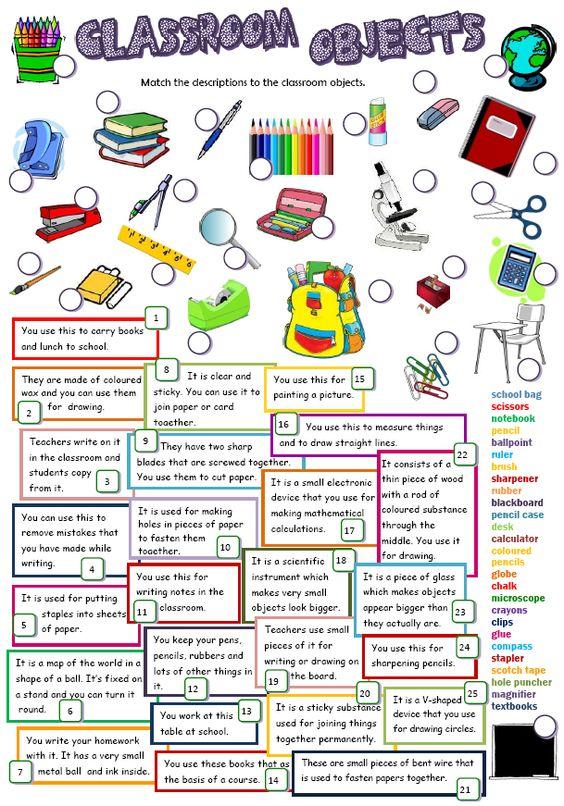 CLASSROOM OBJECTS
Match the descriptions to the classroom objects.
1
You use this to carry books
and lunch to school.
2
They are made of coloured
wax and you can use them
for drawing.
8
It is clear and
sticky. You can use it to
join paper or card
together.
15
You use this for
painting a picture.
3
Teachers write on it
in the classroom and
students copy
from it.
9
They have two sharp
blades that are screwed together.
You use them to cut paper.
16
You use this to measure things
and to draw straight lines.
22
It consists of a
thin piece of wood
with a rod of
coloured substance
through the
middle. You use it
for drawing.
4
You can use this to
remove mistakes that
you have made while
writing.
10
It is used for making
holes in pieces of paper
to fasten them
together.
17
It is a small electronic
device that you use for
making mathematical
calculations.
5
It is used for putting
staples into sheets
of paper.
11
You use this for
writing notes in the
classroom.
18
It is a scientific
instrument which
makes very small
objects look bigger.
23
It is a piece of glass
which makes objects
appear bigger than
they actually are.
6
It is a map of the world in a
shape of a ball. It's fixed on
a stand and you can turn it
round.
12
You keep your pens,
pencils, rubbers and
lots of other things in
it.
19
Teachers use small
pieces of it for
writing or drawing on
the board.
24
You use this for
sharpening pencils.
13
You work at this
table at school.
20
It is a sticky substance
used for joining things
together permanently.
25
It is a V-shaped
device that you use
for drawing circles.
7
You write your homework
with it. It has a very small
metal ball and ink inside.
14
You use these books that as
the basis of a course.
21
These are small pieces of bent wire that
is used to fasten papers together.
school bag
scissors
notebook
pencil
ballpoint
ruler
brush
sharpener
rubber
blackboard
pencil case
desk
calculator
coloured
pencils
globe
chalk
microscope
crayons
clips
glue
compass
stapler
scotch tape
hole puncher
magnifier
textbooks